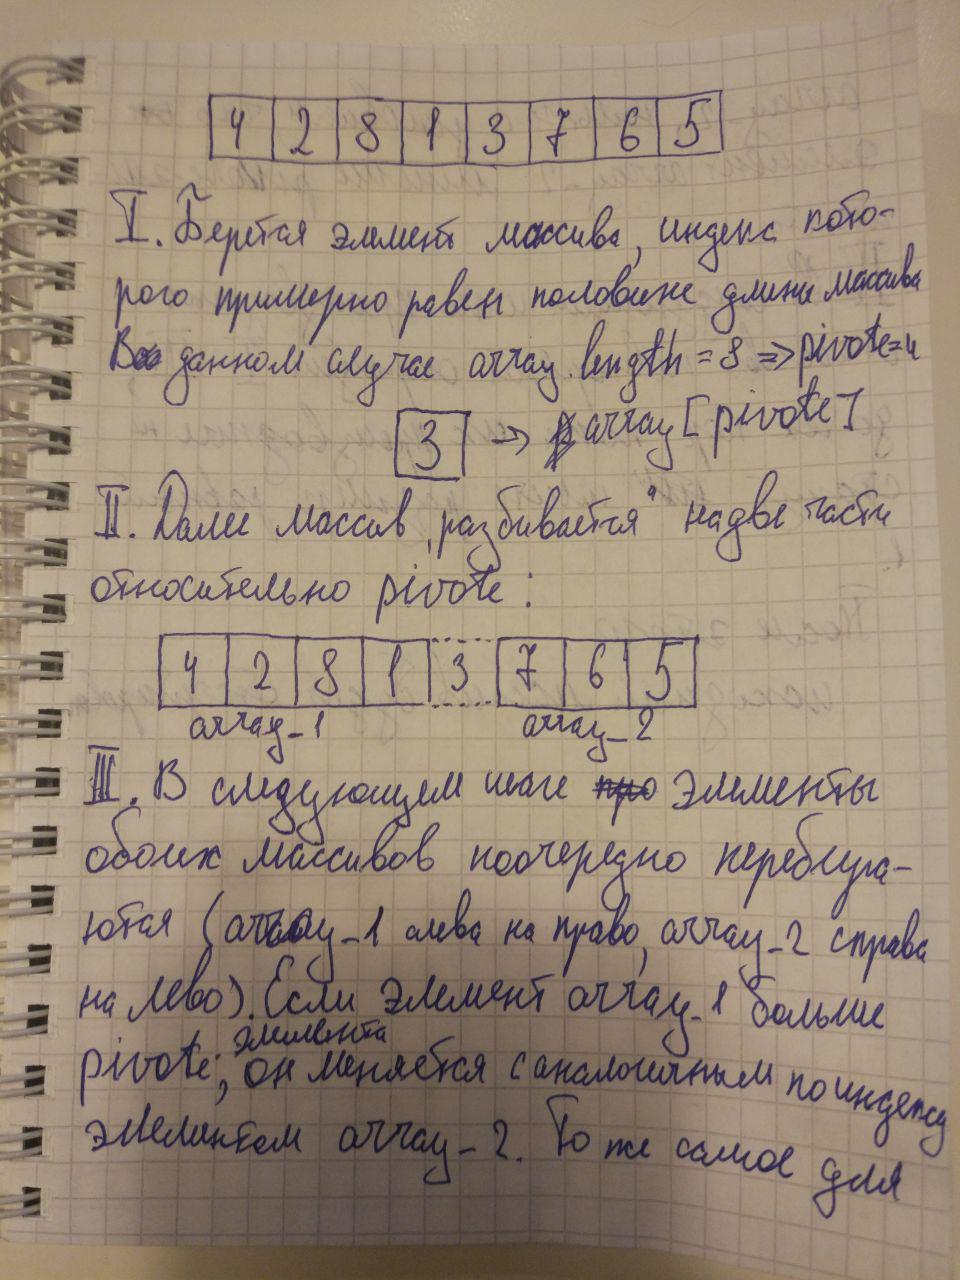 4 2 8 1 3 7 6 5
I. Берется элемент массива, индекс кото-
рого примерно равен половине длины массива
В данном случае array.length = 8 => pivote=4
3 → array[pivote]
II. Далее массив „разбивается" на две части
относительно pivote:
4 2 8 1 3 7 6 5
array_1 array_2
III. В следующем шаге элементы
обоих массивов поочередно перебира-
ются (array_1 слева на право, array_2 справа
на лево). Если элемент array_1 больше
элемента
pivote, он меняется с аналогичным по индексу
элементом array_2. То же самое для